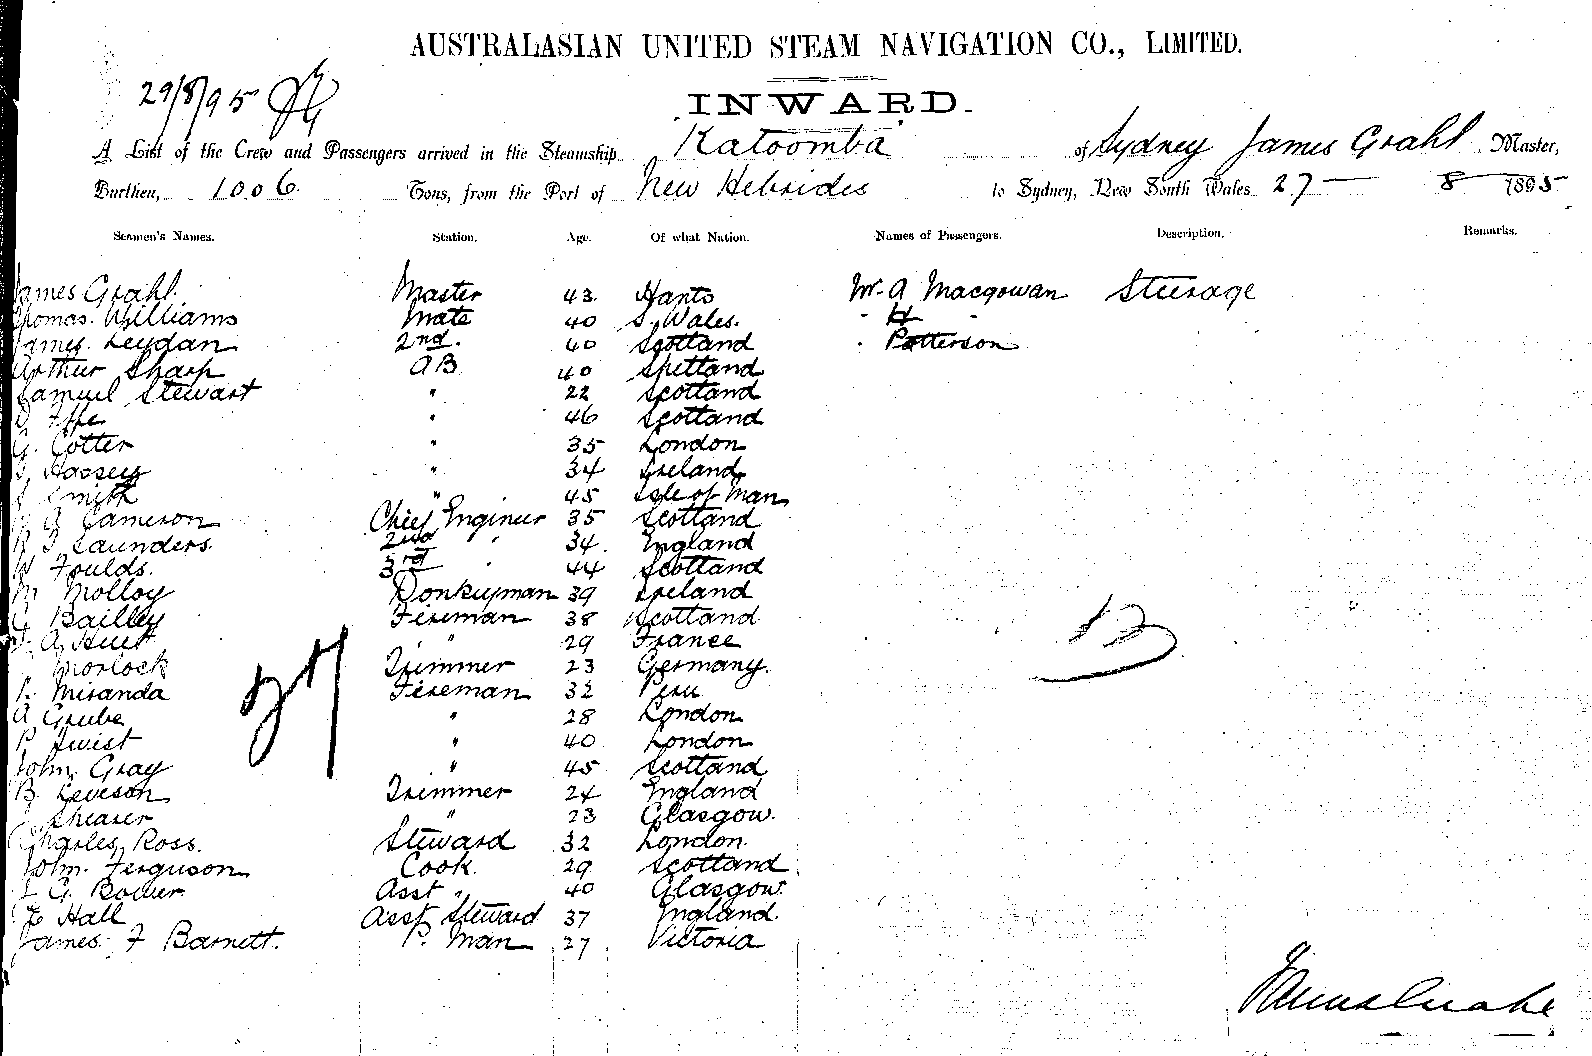 AUSTRALASIAN UNITED STEAM NAVIGATION CO., LIMITED.
29/8/95
INWARD.
A List of the Crew and Passengers arrived in the Steamship Katoomba of Sydney James Grahl Master,
Burthen, 1006 Tons, from the Port of New Hebrides to Sydney, New South Wales 27 8 1895
Seamen's Names. Station. Age. Of what Nation. Names of Passengers. Description. Remarks.
James Grahl. Master 43 Hants Mr. A Macgowan Steerage
Thomas. Williams Mate 40 S. Wales. " H "
James. Leydan 2nd. 40 Scotland " Patterson
Arthur Sharp AB 40 Shetland
Samuel Stewart " 22 Scotland
Fyfe " 46 Scotland
G. Cotter " 35 London
Hassey " 34 Ireland
Smith " 45 Isle of Man
Cameron Chief Engineer 35 Scotland
Saunders. 2nd " 34 England
W Foulds. 3rd " 44 Scotland
M Molloy Donkeyman 39 Ireland
Bailley Fireman 38 Scotland
A Huet " 29 France
Morlock Trimmer 23 Germany.
P. Miranda Fireman 32 Peru
A Grube " 28 London
P. Twist " 40 London
John. Gray " 45 Scotland
B. Leveson Trimmer 24 England
Shearer " 23 Glasgow.
Charles, Ross. Steward 32 London
John. Ferguson Cook 29 Scotland
G. Bower Asst " 40 Glasgow.
E Hall Asst Steward 37 England.
James. F Barnett. P. Man 27 Victoria
27